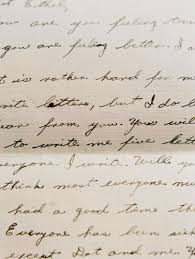 t Ethel,
ow are you feeling
you are feeling better. I
t is rather hard for m
rite letters, but I do
ear from you. You will
to write me five lett
eryone I write. Will yo
think most everyone
had a good time th
Everyone has been sick
except Dot and me. Y